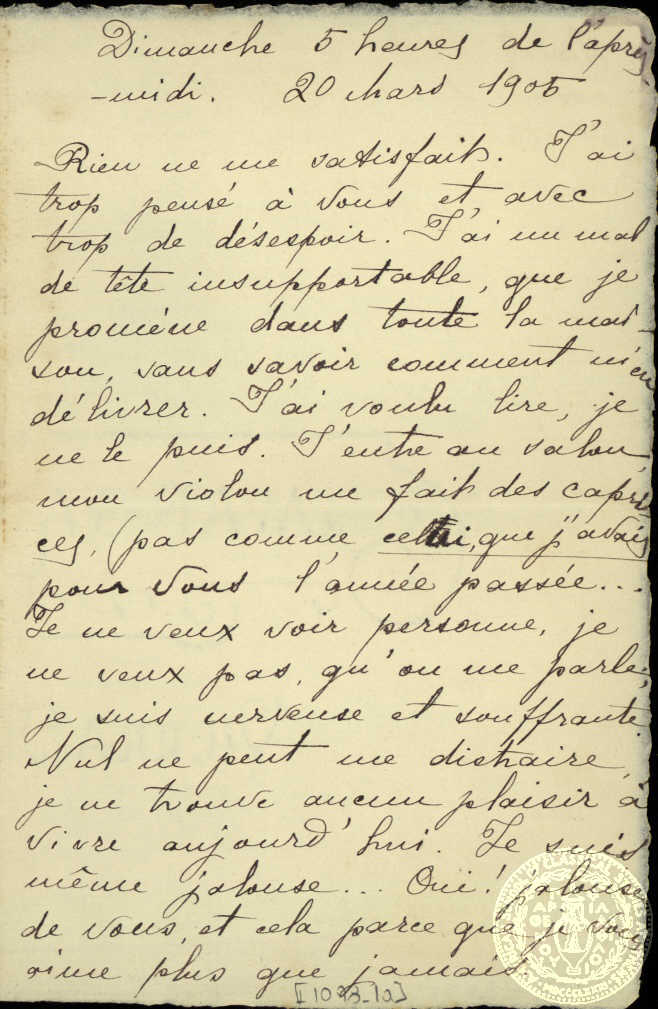 Dimanche 5 heures de l'après
-midi. 20 Mars 1905
Rien ne me satisfait. J'ai
trop pensé à vous et avec
trop de désespoir. J'ai un mal
de tête insupportable, que je
promène dans toute la mai-
son, sans savoir comment m'en
délivrer. J'ai voulu lire, je
ne le puis. J'entre au salon,
mon violon me fait des capri-
ces, (pas comme celui, que j'avais
pour vous l'année passée...
Je ne veux voir personne, je
ne veux pas, qu'on me parle,
je suis nerveuse et souffrante.
Nul ne peut me distraire,
je ne trouve aucun plaisir à
vivre aujourd'hui. Je suis
même jalouse... Oui! jalouse
de vous, et cela parce que je vous
aime plus que jamais.
[1093-1a]